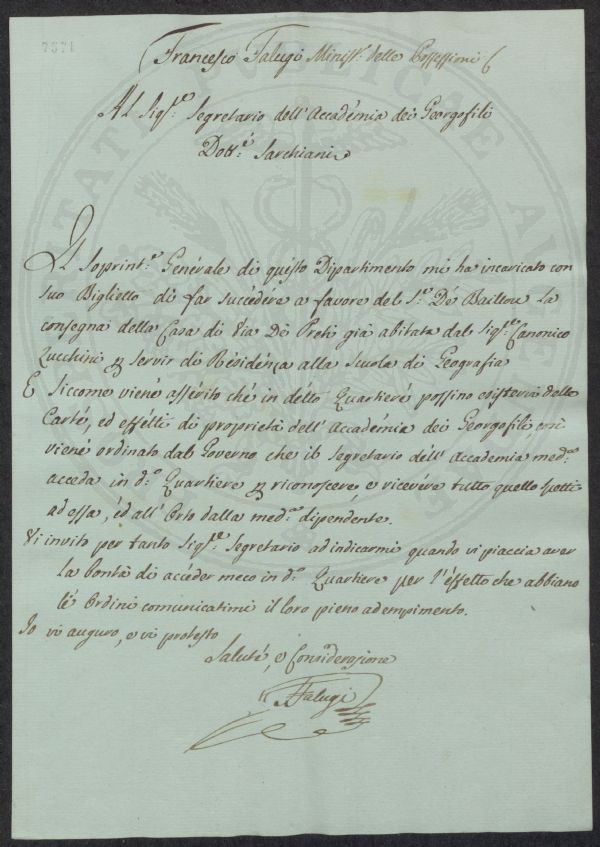 7371
Francesco Falugi Minist.º delle Possessioni
Al Sig.re Segretario dell'Accadémia dei Georgofili
Dott.é Sarchiani
Il Soprint.e Genérale di questo Dipartimento mi ha incaricato con
suo Biglietto di far succédére a favore del S.r Dé Baillou la
consegna della Casa di Via Dé Preti già abitata dal Sig.re Canonico
Zucchini p servir di Résidénza alla Scuola di Geografia
E Siccome viené assérito ché in détto Quartieré possino esistervi delle
Carté, ed efféttì di proprietà dell'Accadémia dei Georgofili, così
viené ordinato dal Governo che il Segretario déll'Accademia med.ª
acceda in d.º Quartiere p riconoscere e vicevére tutto quello spetti
ad essa, éd all'Orto dalla med.ª dipendente.
Vi invito per tanto Sig.re Segretario ad indicarmi quando vi piaccia aver
la Bontà di accéder meco in d.º Quartiere per l'éffetto che abbiano
lé Ordini comunicatimi il loro pieno adempimento.
Io vi auguro, e vi protesto
Saluté, e Considerazione
FFalugi